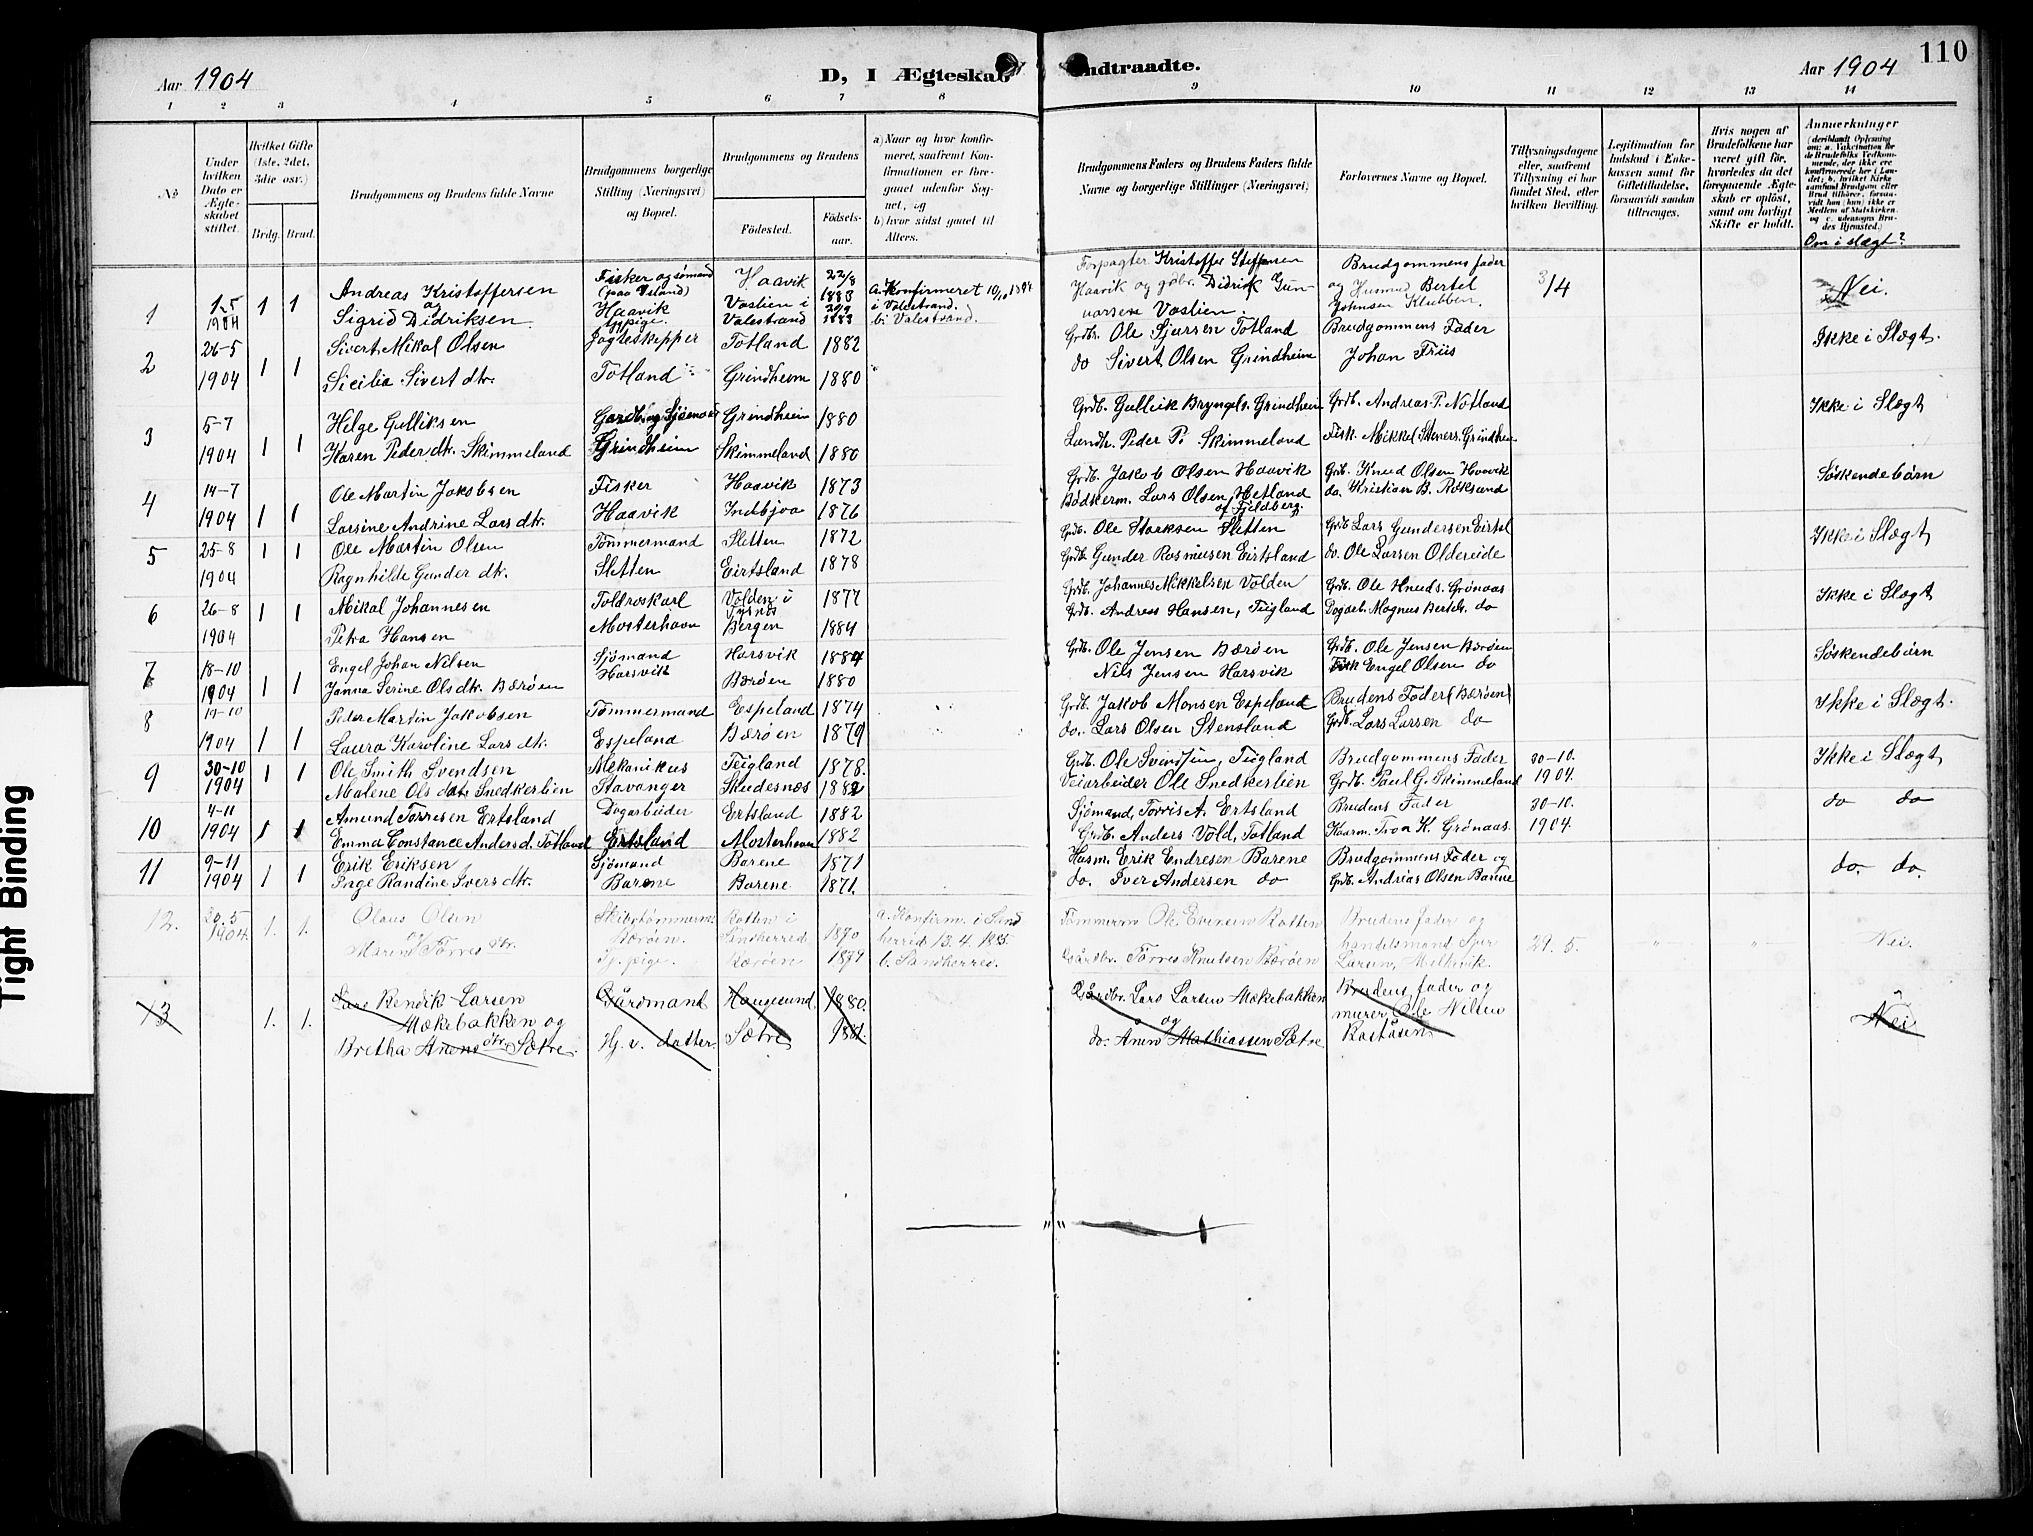 110
Aar 1904
D, I Ægteskab Indtraadte.
Aar 1904
1 2 3 4 5 6 7 8 9 10 11 12 13 14
No
Under hvilken Dato er Ægteskabet stiftet.
Hvilket Gifte (1ste, 2det, 3die osv.)
Brdg. Brud.
Brudgommens og Brudens fulde Navne
Brudgommens borgerlige Stilling (Næringsvei) og Bopæl.
Brudgommens og Brudens
Födested.
Födselsaar.
a) Naar og hvor konfirmeret, saafremt Konfirmationen er foregaaet udenfor Sognet, og
b) hvor sidst gaaet til Alters.
Brudgommens Faders og Brudens Faders fulde Navne og borgerlige Stillinger (Næringsvei)
Forlovernes Navne og Bopæl.
Tillysningsdagene eller, saafremt Tillysning ei har fundet Sted, efter hvilken Bevilling.
Legitimation for Indskud i Enkekassen samt for Giftetilladelse, forsaavidt saadan tiltrænges.
Hvis nogen af Brudefolkene har været gift før, hvorledes da det foregaaende Ægteskab er opløst, samt om lovligt Skifte er holdt.
Anmerkninger
(deriblandt Oplysning om: a. Vakcination for de Brudefolks Vedkommende, der ikke ere konfirmerede her i Landet; b. hvilket Kirkesamfund Brudgom eller Brud tilhører, forsaavidt han (hun) ikke er Medlem af Statskirken, og c. udensogns Brudes Hjemsted.)
Om i slægt?
1 1-5 1904 1 1 Andreas Kristoffersen og Sigrid Didriksen. Fisker og sømand (paa Island) Haavik pige. Haavik 22/8 1883 Vastlien i Valestrand 1883 a. Konfirmeret i Valestrand. b. Valestrand. Forpagter Kristoffer Steffensen Haavik og gdbr. Didrik Gunnarsen Vastlien. Brudgommens fader og Husmd Bertel Johnsen Klubben. 3/4 Nei.
2 26-5 1904 1 1 Sivert Mikal Olsen Sicilia Sivert dtr. Jagteskipper Totland Totland 1882 Grindheim 1880 Grdbr. Ole Sjursen Totland do Sivert Olsen Grindheim Brudgommens Fader Johan Friis Ikke i Slægt.
3 5-7 1904 1 1 Helge Gulliksen Karen Peder dtr. Skimmeland Gardb. og Sjømand Grindheim Grindheim 1880 Skimmeland 1880 Grdb. Gullvik Bryngels. Grindheim Landh. Peder P. Skimmeland Grdb. Andreas P. Notland Fisk. Mikkel Steners. Grindheim Ikke i Slægt
4 14-7 1904 1 1 Ole Martin Jakobsen Larsine Andrine Lars dtr. Fisker Haavik Haavik 1873 Indbjoa 1876 Grdb. Jakob Olsen Haavik Bødkerm. Lars Olsen Hetland af Fjeldberg. Grdb. Knud Olsen Haavik do. Kristian B. Røksund Søskendebørn
5 25-8 1904 1 1 Ole Martin Olsen Ragnhilde Gunder dtr. Tømmermand Sletten Sletten 1872 Eirtsland 1878 Grdb. Ole Starksen Sletten Grdb. Gunder Rasmusen Eirtsland Grdb. Lars Gundersen Eirtsl do. Ole Larsen Oldereide Ikke i Slægt
6 26-8 1904 1 1 Mikal Johannesen Petra Hansen Toldroskarl Mosterhavn Volden i Tysnes 1877 Bergen 1884 Grdb. Johannes Mikkelsen Volden Grdb. Andreas Hansen, Teigland Grdb. Ole Knuds. Grønaas Dagarb. Magnus Bertels. do Ikke i Slægt
7 18-10 1904 1 1 Engel Johan Nilsen Janna Serine Ols dtr. Bærøen Sjömand Harsvik Harsvik 1884 Bærøen 1880 Grdb. Ole Jensen Bærøen Nils Jensen Harsvik Grdb. Ole Jensen Bærøen Fisk Engel Olsen do Søskendebørn
8 19-10 1904 1 1 Peder Martin Jakobsen Laura Karoline Lars dtr. Tømmermand Espeland Espeland 1874 Bærøen 1879 Grdb. Jakob Monsen Espeland do. Lars Olsen Stensland Brudens Fader (Bærøen) Grdb. Lars Larsen do Ikke i Slægt.
9 30-10 1904 1 1 Ole Smith Svendsen Malene Ols datr. Snedkerlien Mekanikus Stavanger Teigland 1878. Skudesnæs 1882 Grdb. Ole Svendsen, Teigland Veiarbeider Ole Snedkerlien Brudgommens Fader Grdb. Paul G. Skimmeland 30-10. 1904. Ikke i Slægt
10 4-11 1904 1 1 Amund Torrisen Ertsland Emma Constance Andersd. Totland Dagarbeider Ertsland Ertsland 1882 Mosterhavn 1882 Sjömand, Torris A. Ertsland Grdb. Anders Vold, Totland Brudens Fader Kaarm. Tron K. Grönaas. 30-10. 1904. do do
11 9-11 1904 1 1 Erik Eriksen Inge Randine Ivers dtr. Sjömand Barene Barene 1871 Barene 1871. Husm. Erik Endresen Barene do. Iver Andersen do Brudgommens Fader og Grdb. Andreas Olsen Barene do. do.
12. 29.5 1904. 1. 1. Olaus Olsen og Maren Torres dtr. Skibstømmerm. Bærøen. Gj. pige. Ratten i Sandherred 1870 Bærøen 1879 a. Konfirm. i Sandherred 13.4.1885. b. Sandherred. Tømmerm Ole Evensen Ratten Gårdbr. Torres Knutsen Bærøen Brudens fader og handelsmand Sjur Larsen, Melkevik. 29.5. " " Nei.
13 1. 1. Lars Rendik Larsen Mækebakken og Bretha Anens dtr. Sætre. Gårdmand Hj. v. datter. Haugesund 1880. Sætre 1881. Gårdbr. Lars Larsen Mækebakken og do. Anen Mathiassen Sætre. Brudens fader og murer Ole Nilsen Raståsen Nei
Tight Binding